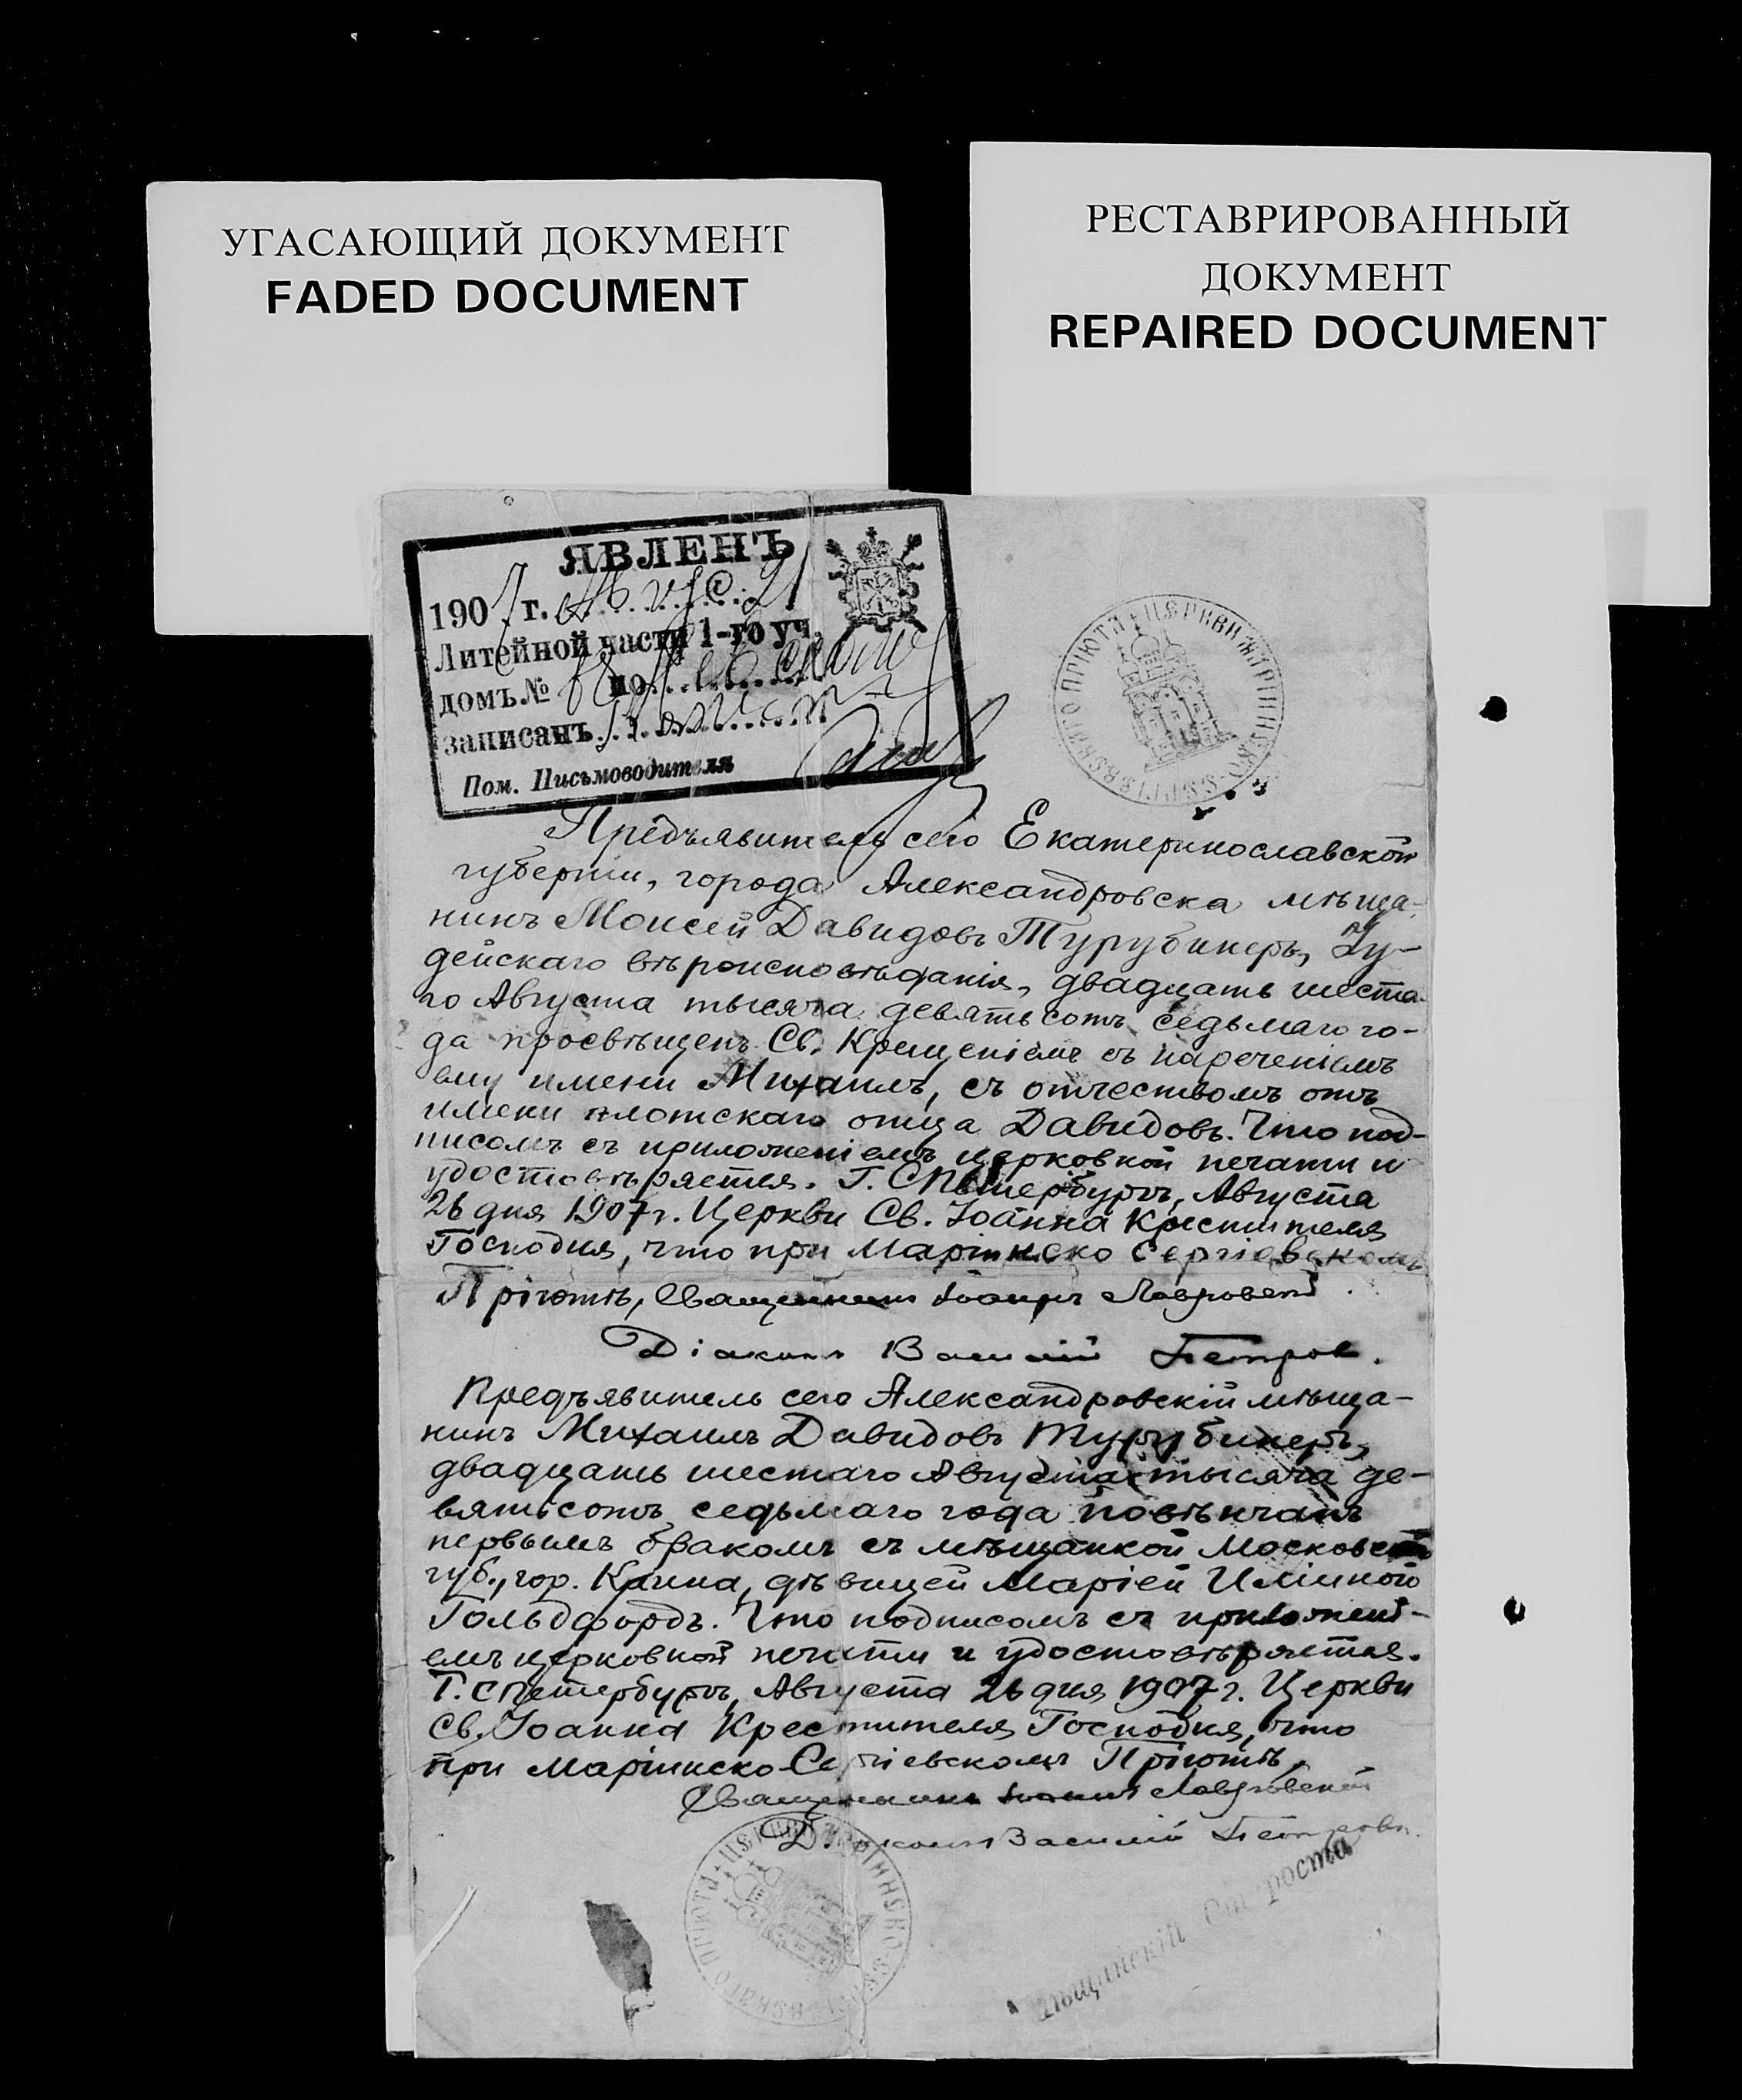 УГАСАЮЩИЙ ДОКУМЕНТ
FADED DOCUMENT
РЕСТАВРИРОВАННЫЙ
ДОКУМЕНТ
REPAIRED DOCUMENT
ЯВЛЕНЪ
1907 г.
Литейной части 1-го уч.
домъ № по
записанъ
Пом. Письмоводителя
ЦЕРКВИ МАРIИНСКО-СЕРГIЕВСКАГО ПРIЮТА
Предъявитель сего Екатеринославской
губернiи, города Александровска мѣща-
нинъ Моисей Давидовъ Турубинеръ, Iу-
дейскаго вѣроисповѣданiя, двадцать шеста-
го Августа тысяча девятьсотъ седьмаго го-
да просвѣщенъ Св. Крещенiемъ съ нареченiемъ
ему имени Михаилъ, съ отчествомъ отъ
имени плотскаго отца Давидовъ. Что под-
писомъ съ приложенiемъ церковной печати и
удостовѣряется. Г. СПетербургъ, Августа
26 дня 1907 г. Церкви Св. Iоанна Крестителя
Господня, что при Марiинско Сергiевскомъ
Прiютѣ, Священникъ Iоаннъ Лавровскiй.
Дiаконъ Василiй Петров.
Предъявитель сего Александровскiй мѣща-
нинъ Михаилъ Давидовъ Турубинеръ,
двадцать шестаго Августа тысяча де-
вятьсотъ седьмаго года повѣнчанъ
первымъ бракомъ съ мѣщанкой Московской
губ., гор. Клина, дѣвицей Марiей
Гольдфордъ. Что подписомъ съ приложенi-
емъ церковной печати и удостовѣряется.
Г. СПетербургъ, Августа 26 дня 1907 г. Церкви
Св. Iоанна Крестителя Господня, что
при Марiинско-Сергiевскомъ Прiютѣ,
Священникъ Iоаннъ Лавровскiй
Дiаконъ Василiй Петровъ.
ЦЕРКВИ МАРIИНСКО-СЕРГIЕВСКАГО ПРIЮТА
Мѣщанскiй Староста